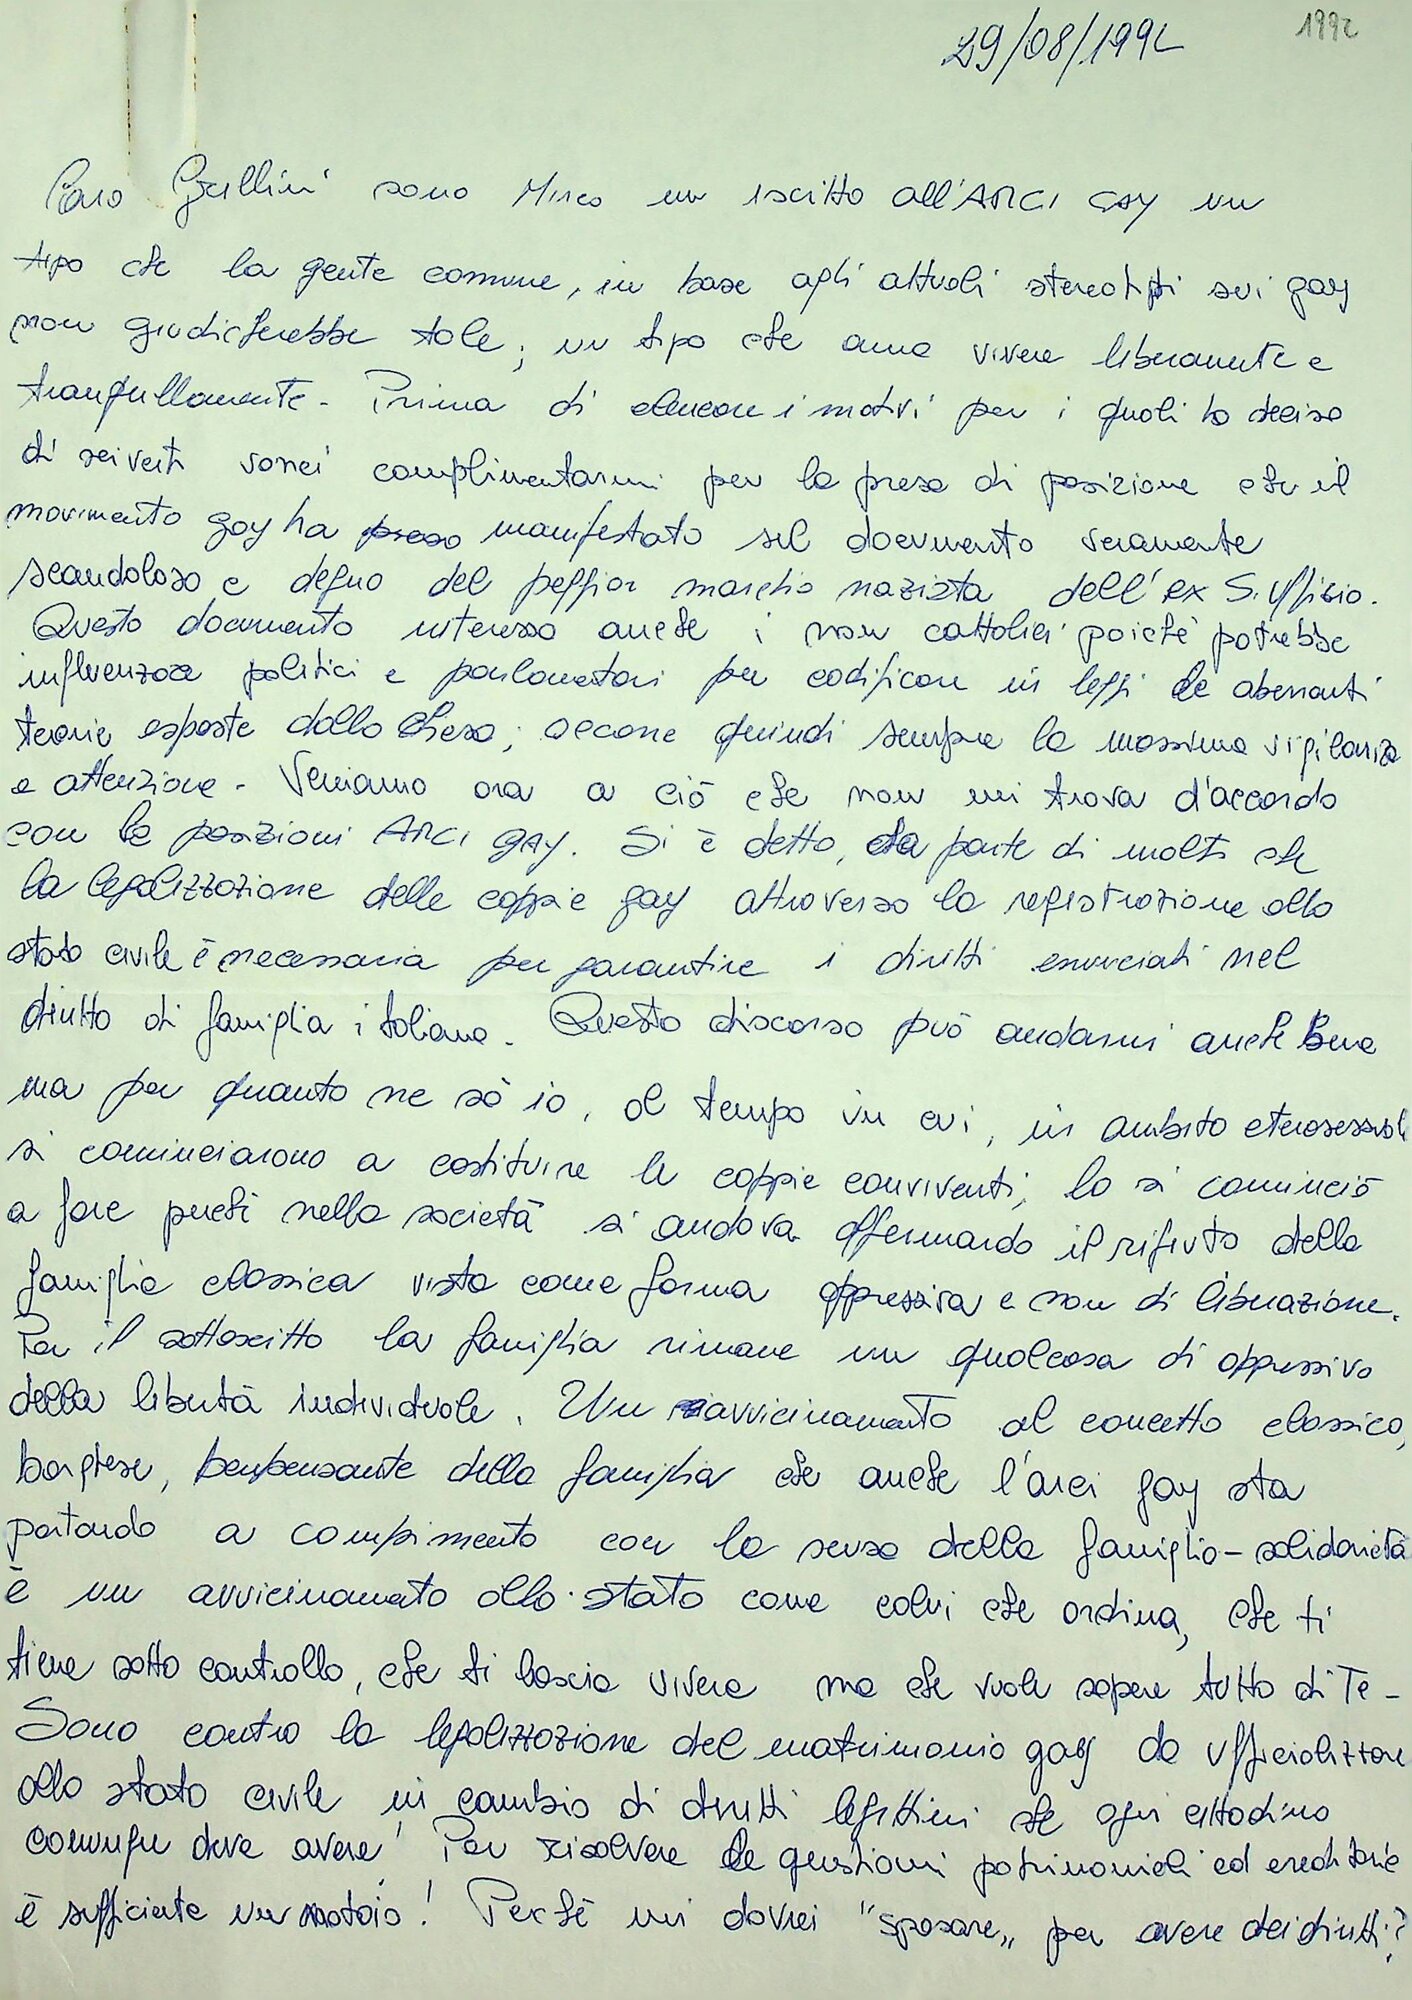 29/08/1992
1992
Caro Grillini sono Mirco un iscitto all'ARCI GAY un
tipo che la gente comune, in base agli attuali stereotipi sui gay
non giudicherebbe tale; un tipo che ama vivere liberamente e
tranquillamente. Prima di elencare i motivi per i quali ho deciso
di scriverti vorrei complimentarmi per la presa di posizione che il
movimento gay ha preso manifestato sul documento veramente
scandoloso e degno del peggior marchio nazista dell'ex S. Uffizio.
Questo documento interessa anche i non cattolici poichè potrebbe
influenzare politici e parlamentari per codificare in leggi le aberranti
teorie esposte dalla chiesa; occorre quindi sempre la massima vigilanza
e attenzione. Veniamo ora a ciò che non mi trova d'accordo
con le posizioni ARCI GAY. Si è detto, da parte di molti che
la legalizzazione delle coppie gay attraverso la registrazione allo
stato civile è necessaria per garantire i diritti enunciati nel
diritto di famiglia italiano. Questo discorso può andarmi anche bene
ma per quanto ne sò io, al tempo in cui, in ambito eterosessuale
si cominciarono a costituire le coppie conviventi, lo si cominciò
a fare perchè nella società si andava affermando il rifiuto della
famiglia classica vista come forma oppressiva e non di liberazione.
Per il sottoscitto la famiglia rimane un qualcosa di oppressivo
della libertà individuale. Un riavvicinamento al concetto classico,
borghese, benpensante della famiglia che anche l'arci gay sta
portando a compimento con la scusa della famiglia-solidarietà
è un avvicinamento allo stato come colui che ordina, che ti
tiene sotto controllo, che ti lascia vivere ma che vuole sapere tutto di Te-
Sono contro la legalizzazione del matrimonio gay da ufficializzare
allo stato civile in cambio di diritti legittimi che ogni cittadino
comunque deve avere! Per risolvere le questioni patrimoniali ed ereditarie
è sufficiente un notaio! Perchè mi dovrei "sposare" per avere dei diritti?